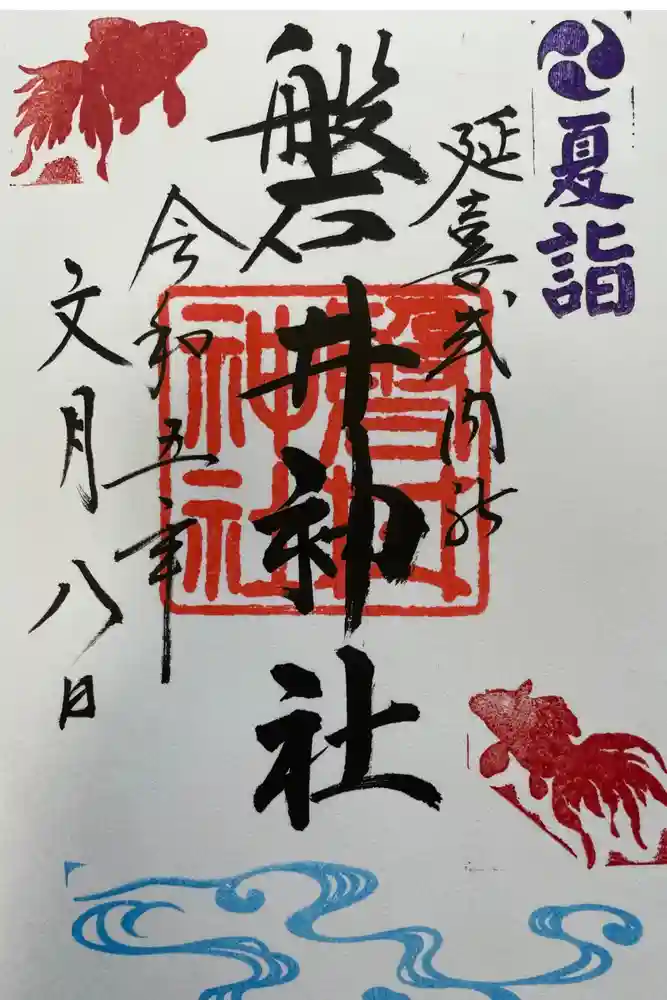 夏詣
延喜式内社
磐井神社
磐井神社
令和五年
文月八日